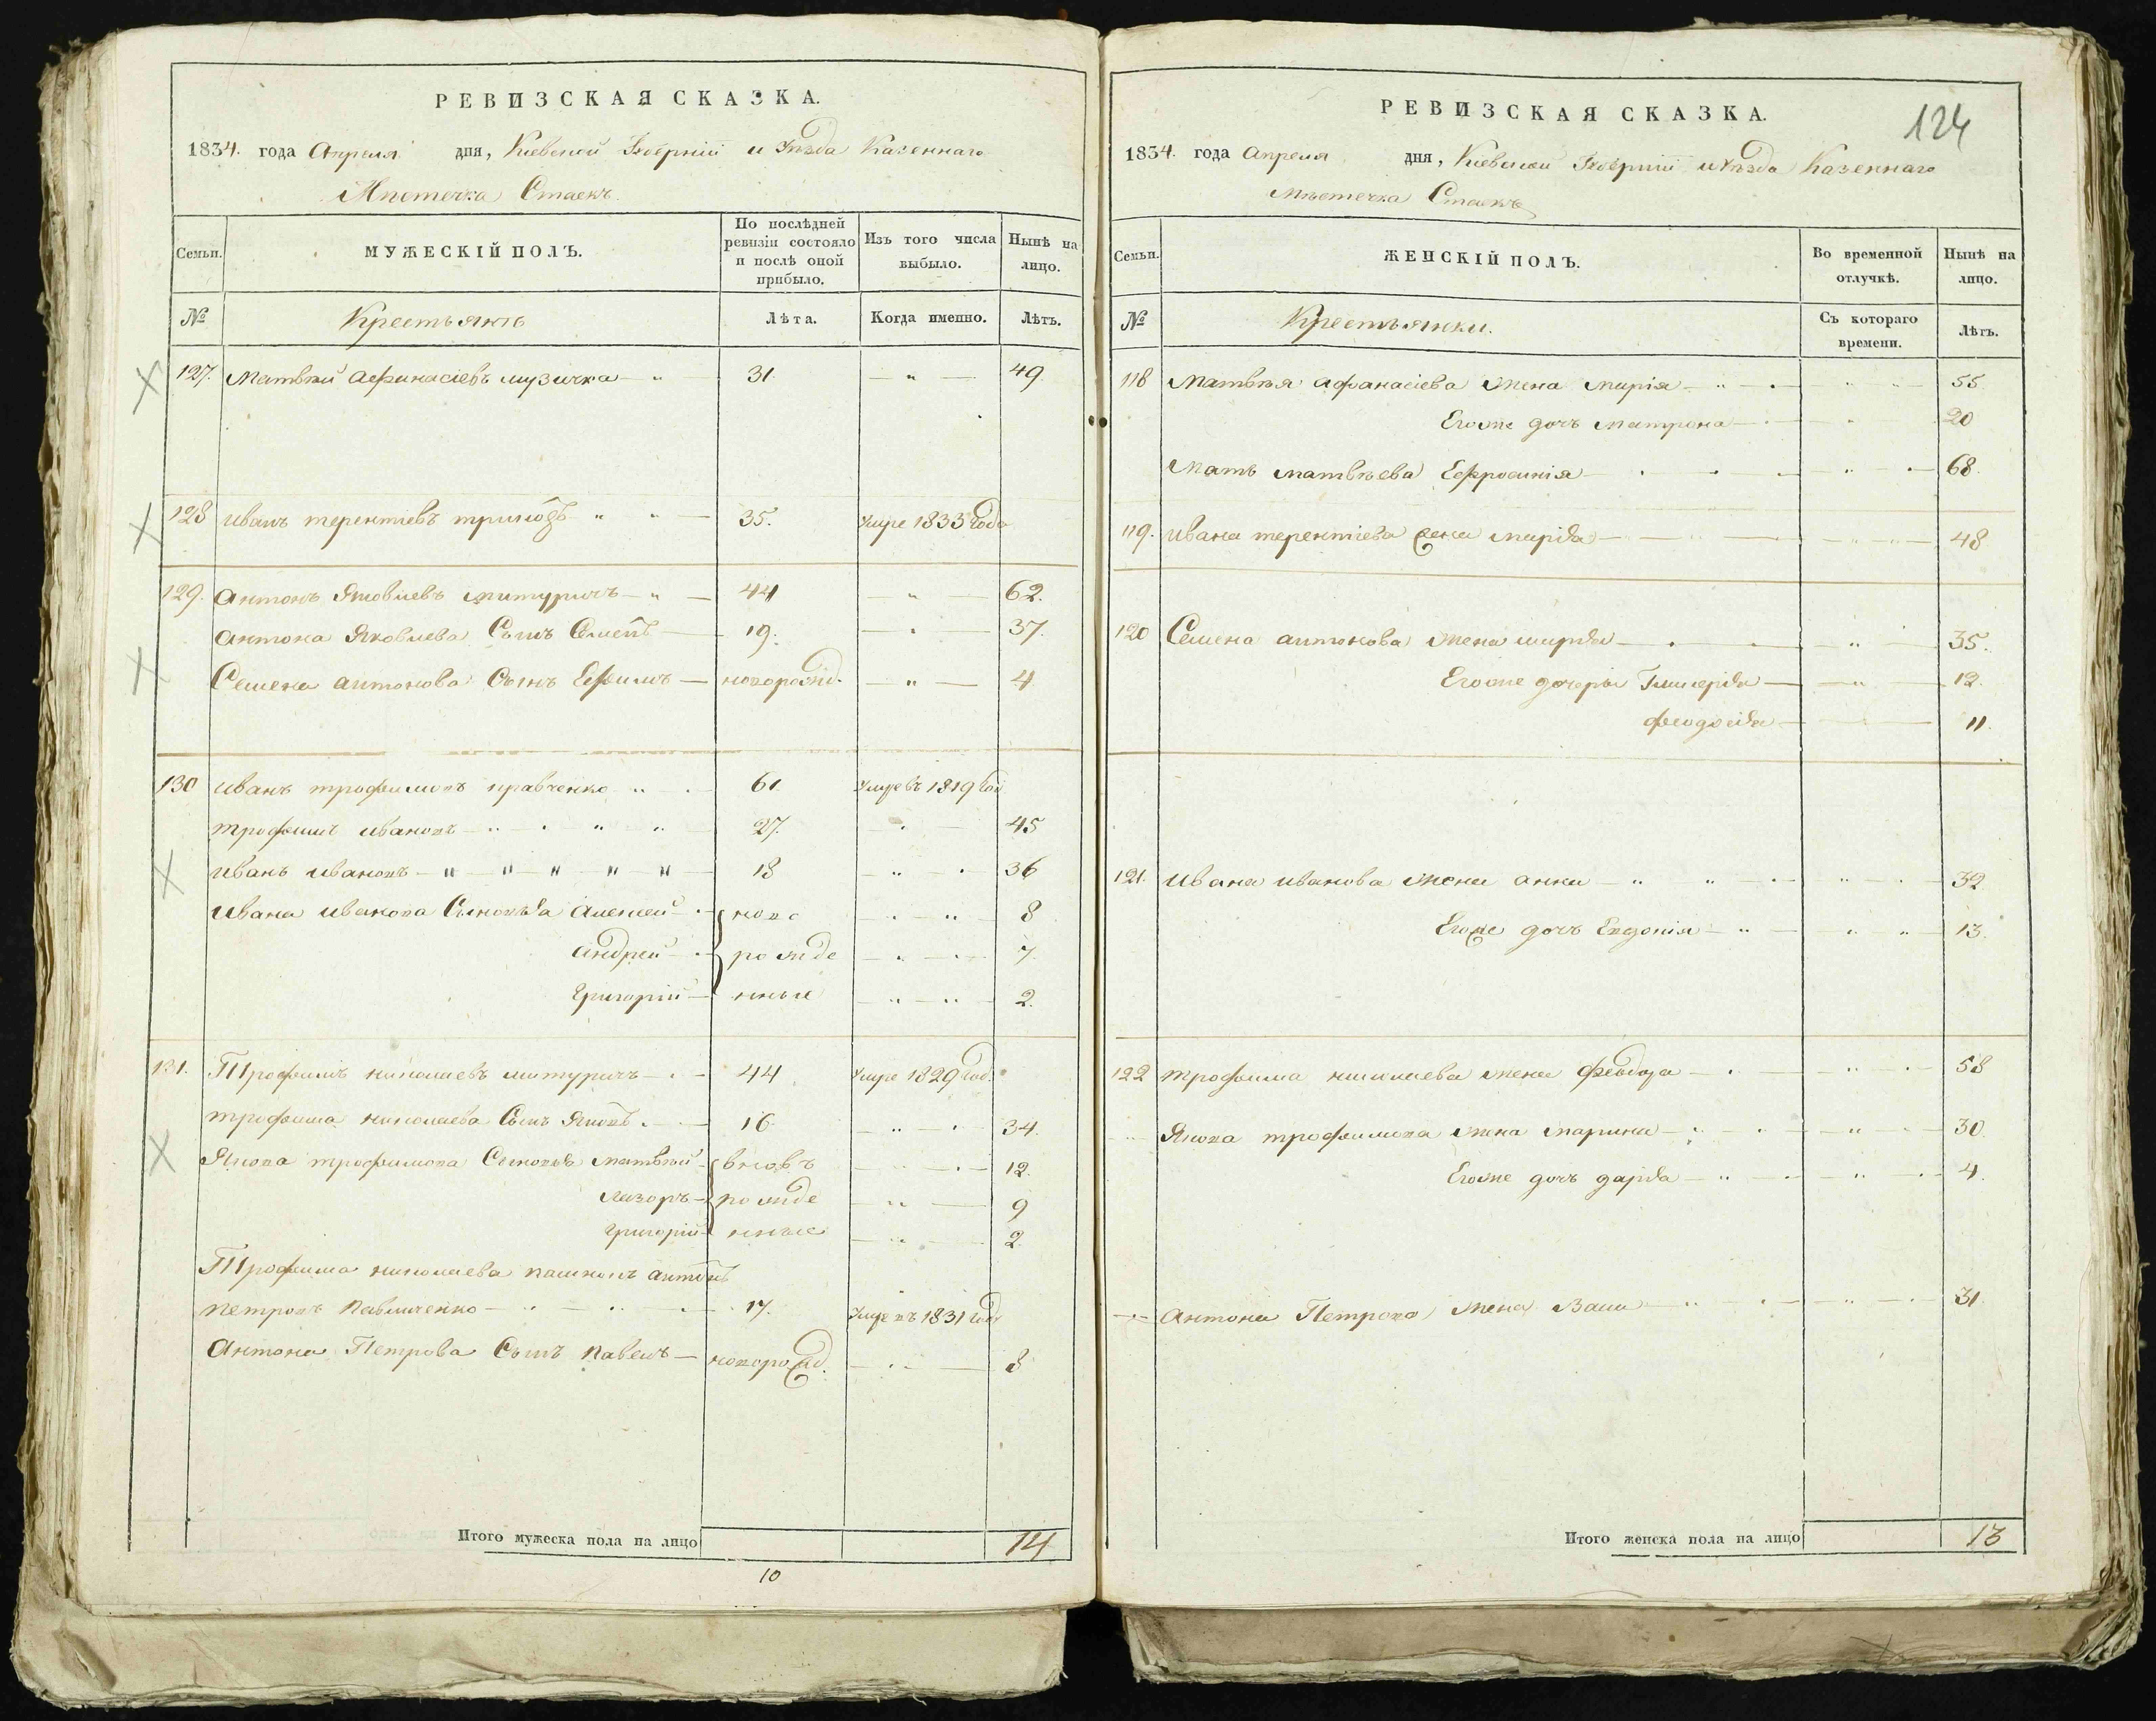 РЕВИЗСКАЯ СКАЗКА.
1834. года Апреля дня, Киевской Губернiи и Уѣзда Казеннаго
Мѣстечка Стаекъ
Семьи.
МУЖЕСКІЙ ПОЛЪ.
По послѣдней ревизіи состояло и послѣ оной прибыло.
Изъ того числа выбыло.
Нынѣ на лицо.
№
Крестьянѣ
Лѣта.
Когда именно.
Лѣтъ.
127. Матвѣй Афанасіевъ музичка 31. 49
128 иванъ терентіевъ 35. умре 1833 года
129. Антонъ Яковлевъ митуричъ 44 62.
Антона Яковлева Сынъ Семенъ 19. 37.
Семена антонова Сынъ Ефимъ новорожд. 4
130 иванъ трофимовъ кравченко 61 умре въ 1819 год
трофимъ ивановъ 27. 45
иванъ ивановъ 18 36
ивана иванова Сыновья Алексей ново 8
Андрей рожде 7
Григорій нные 2.
131. Трофимъ николаевъ митуричъ 44 умре 1829 год.
трофима николаева Сынъ Яковъ 16 34.
Якова трофимова Сыновья матвѣй вновъ 12.
Лазоръ рожде 9
григорій нные 2.
Трофима николаева антонъ
петровъ павличенко 17. умре въ 1831 годе
Антона Петрова Сынъ павелъ новорожд. 8
Итого мужеска пола на лицо 14
10
124
РЕВИЗСКАЯ СКАЗКА.
1834. года Апреля дня, Киевской Губернiи и Уѣзда Казеннаго
Мѣстечка Стаекъ
Семьи.
ЖЕНСКІЙ ПОЛЪ.
Во временной отлучкѣ.
Нынѣ на лицо.
№
Крестьянки.
Съ котораго времени.
Лѣтъ.
118 Матвѣя Афанасіева жена марія 55
Егоже дочъ матрона 20
Мать матвѣева Ефросинія 68.
119. ивана терентіева жена марія 48
120 Семена антонова жена марія 35.
Егоже дочери Гликерія 12.
феодосія 11.
121. Ивана иванова жена анна 32
Егоже дочъ Евдокія 13.
122 трофима николаева жена 58
Якова трофимова жена марина 30
Егоже дочъ дарія 4.
Антона Петрова жена 31
Итого женска пола на лицо 13